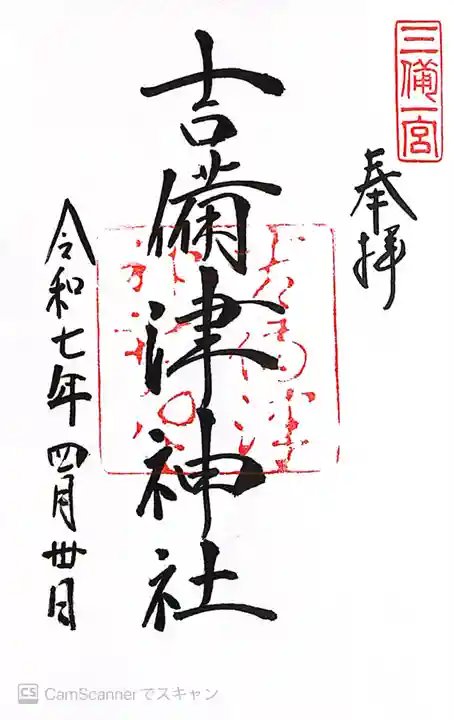 三備一宮
奉拝
吉備津神社
令和七年四月卅日
CS CamScannerでスキャン